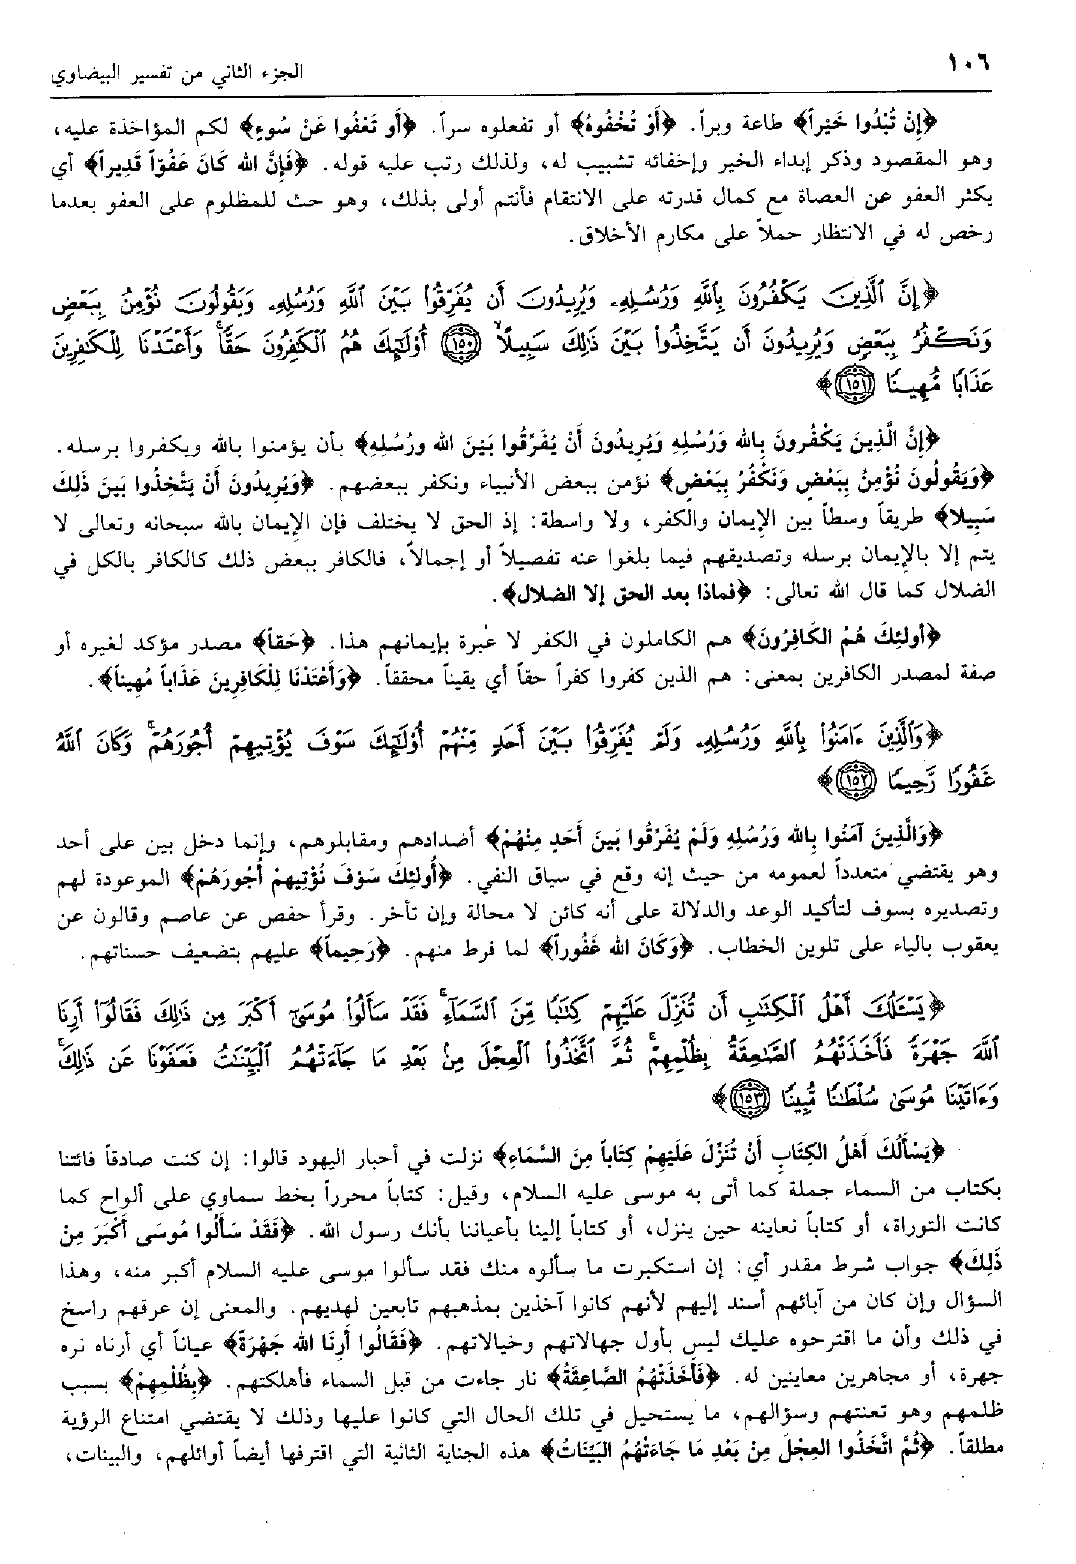 ١٠٦
الجزء الثاني من تفسير البيضاوي
﴿إِنْ تُبْدُوا خَيْراً﴾ طاعة وبراً. ﴿أَوْ تُخْفُوهُ﴾ أو تفعلوه سراً. ﴿أَو تَعْفُوا عَنْ سُوءٍ﴾ لكم المؤاخذة عليه،
وهو المقصود وذكر إبداء الخير وإخفائه تشبيب له، ولذلك رتب عليه قوله. ﴿فَإِنَّ الله كَانَ عَفُوّاً قَدِيراً﴾ أي
يكثر العفو عن العصاة مع كمال قدرته على الانتقام فأنتم أولى بذلك، وهو حث للمظلوم على العفو بعدما
رخص له في الانتظار حملاً على مكارم الأخلاق.
﴿إِنَّ ٱلَّذِينَ يَكْفُرُونَ بِٱللَّهِ وَرُسُلِهِۦ وَيُرِيدُونَ أَن يُفَرِّقُوا۟ بَيْنَ ٱللَّهِ وَرُسُلِهِۦ وَيَقُولُونَ نُؤْمِنُ بِبَعْضٍ
وَنَكْفُرُ بِبَعْضٍ وَيُرِيدُونَ أَن يَتَّخِذُوا۟ بَيْنَ ذَٰلِكَ سَبِيلًا ۙ ﴿١٥٠﴾ أُو۟لَٰٓئِكَ هُمُ ٱلْكَٰفِرُونَ حَقًّا ۚ وَأَعْتَدْنَا لِلْكَٰفِرِينَ
عَذَابًا مُّهِينًا ﴿١٥١﴾﴾
﴿إِنَّ الَّذِينَ يَكْفُرونَ بِالله وَرُسُلِهِ وَيُرِيدُونَ أَنْ يُفَرِّقُوا بَيْنَ الله ورُسُلِهِ﴾ بأن يؤمنوا بالله ويكفروا برسله.
﴿وَيَقُولُونَ نُؤْمِنُ بِبَعْضٍ وَنَكْفُرُ بِبَعْضٍ﴾ نؤمن ببعض الأنبياء ونكفر ببعضهم. ﴿وَيُرِيدُونَ أَنْ يَتَّخِذُوا بَيْنَ ذَلِكَ
سَبِيلا﴾ طريقاً وسطاً بين الإيمان والكفر، ولا واسطة: إذ الحق لا يختلف فإن الإيمان بالله سبحانه وتعالى لا
يتم إلا بالإيمان برسله وتصديقهم فيما بلغوا عنه تفصيلاً أو إجمالاً، فالكافر ببعض ذلك كالكافر بالكل في
الضلال كما قال الله تعالى: ﴿فماذا بعد الحق إلا الضلال﴾.
﴿أُولئِكَ هُمُ الكَافِرُونَ﴾ هم الكاملون في الكفر لا عبرة بإيمانهم هذا. ﴿حَقاً﴾ مصدر مؤكد لغيره أو
صفة لمصدر الكافرين بمعنى: هم الذين كفروا كفراً حقاً أي يقيناً محققاً. ﴿وَأَعْتَدْنَا لِلْكَافِرِينَ عَذَاباً مُهِيناً﴾.
﴿وَٱلَّذِينَ ءَامَنُوا۟ بِٱللَّهِ وَرُسُلِهِۦ وَلَمْ يُفَرِّقُوا۟ بَيْنَ أَحَدٍ مِّنْهُمْ أُو۟لَٰٓئِكَ سَوْفَ يُؤْتِيهِمْ أُجُورَهُمْ ۗ وَكَانَ ٱللَّهُ
غَفُورًا رَّحِيمًا ﴿١٥٢﴾﴾
﴿وَالَّذِينَ آمَنُوا بِالله وَرُسُلِهِ وَلَمْ يُفَرِّقُوا بَيْنَ أَحَدٍ مِنْهُمْ﴾ أضدادهم ومقابلوهم، وإنما دخل بين على أحد
وهو يقتضي متعدداً لعمومه من حيث إنه وقع في سياق النفي. ﴿أُولئِكَ سَوْفَ نُؤْتِيهِمْ أُجُورَهُمْ﴾ الموعودة لهم
وتصديره بسوف لتأكيد الوعد والدلالة على أنه كائن لا محالة وإن تأخر. وقرأ حفص عن عاصم وقالون عن
يعقوب بالياء على تلوين الخطاب. ﴿وَكَانَ الله غَفُوراً﴾ لما فرط منهم. ﴿رَحِيماً﴾ عليهم بتضعيف حسناتهم.
﴿يَسْـَٔلُكَ أَهْلُ ٱلْكِتَٰبِ أَن تُنَزِّلَ عَلَيْهِمْ كِتَٰبًا مِّنَ ٱلسَّمَآءِ ۚ فَقَدْ سَأَلُوا۟ مُوسَىٰٓ أَكْبَرَ مِن ذَٰلِكَ فَقَالُوٓا۟ أَرِنَا
ٱللَّهَ جَهْرَةً فَأَخَذَتْهُمُ ٱلصَّٰعِقَةُ بِظُلْمِهِمْ ۚ ثُمَّ ٱتَّخَذُوا۟ ٱلْعِجْلَ مِنۢ بَعْدِ مَا جَآءَتْهُمُ ٱلْبَيِّنَٰتُ فَعَفَوْنَا عَن ذَٰلِكَ ۚ
وَءَاتَيْنَا مُوسَىٰ سُلْطَٰنًا مُّبِينًا ﴿١٥٣﴾﴾
﴿يَسْأَلُكَ أَهْلُ الكِتَابِ أَنْ تُنَزِّلَ عَلَيْهِمْ كِتَاباً مِنَ السَّمَاءِ﴾ نزلت في أحبار اليهود قالوا: إن كنت صادقاً فائتنا
بكتاب من السماء جملة كما أتى به موسى عليه السلام، وقيل: كتاباً محرراً بخط سماوي على ألواح كما
كانت التوراة، أو كتاباً نعاينه حين ينزل، أو كتاباً إلينا بأعياننا بأنك رسول الله. ﴿فَقَدْ سَأَلُوا مُوسَى أَكْبَرَ مِنْ
ذَلِكَ﴾ جواب شرط مقدر أي: إن استكبرت ما سألوه منك فقد سألوا موسى عليه السلام أكبر منه، وهذا
السؤال وإن كان من آبائهم أسند إليهم لأنهم كانوا آخذين بمذهبهم تابعين لهديهم. والمعنى إن عرقهم راسخ
في ذلك وأن ما اقترحوه عليك ليس بأول جهالاتهم وخيالاتهم. ﴿فَقَالُوا أَرِنَا الله جَهْرَةً﴾ عياناً أي أرناه نره
جهرة، أو مجاهرين معاينين له. ﴿فَأَخَذَتْهُمُ الصَّاعِقَةُ﴾ نار جاءت من قبل السماء فأهلكتهم. ﴿بِظُلْمِهِمْ﴾ بسبب
ظلمهم وهو تعنتهم وسؤالهم، ما يستحيل في تلك الحال التي كانوا عليها وذلك لا يقتضي امتناع الرؤية
مطلقاً. ﴿ثُمَّ اتَّخَذُوا العِجْلَ مِنْ بَعْدِ مَا جَاءَتْهُمُ البَيِّنَاتُ﴾ هذه الجناية الثانية التي اقترفها أيضاً أوائلهم، والبينات،